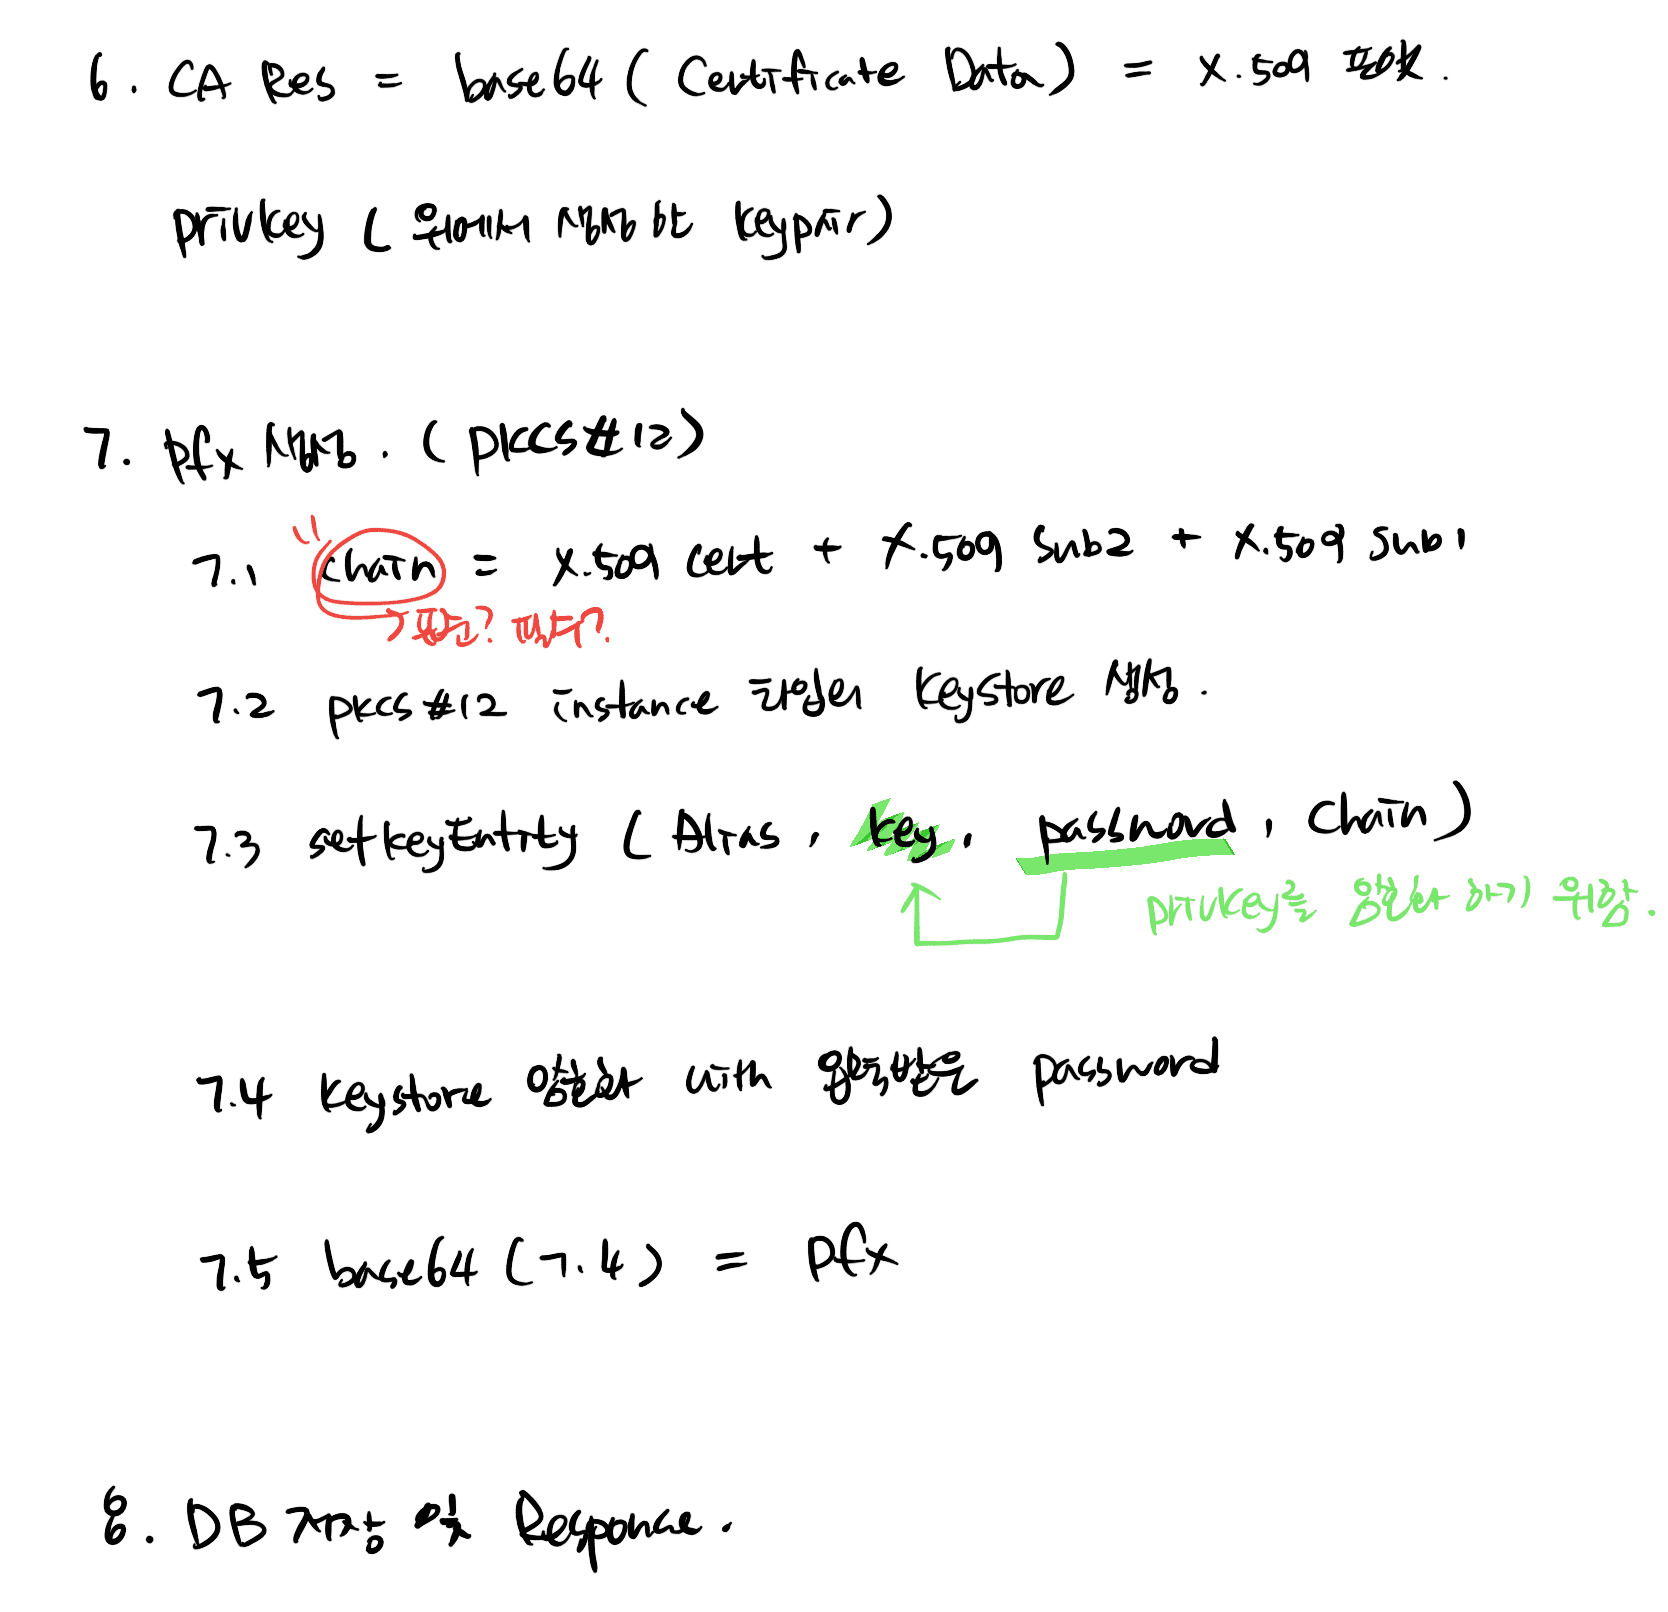 6. CA Res = base64 ( Certificate Data ) = X.509 포맷.
privkey ( 위에서 생성한 keypair )
7. pfx 생성. ( PKCS#12 )
7.1 "chain = X.509 cert + X.509 sub2 + X.509 sub1
→ 표준? 필수?
7.2 PKCS#12 instance 타입의 keystore 생성.
7.3 setkeyEntity ( Alias, key, password, chain )
privkey를 암호화 하기 위함.
7.4 keystore 암호화 with 입력받은 password
7.5 base64 (7.4) = pfx
8. DB 저장 및 Response.